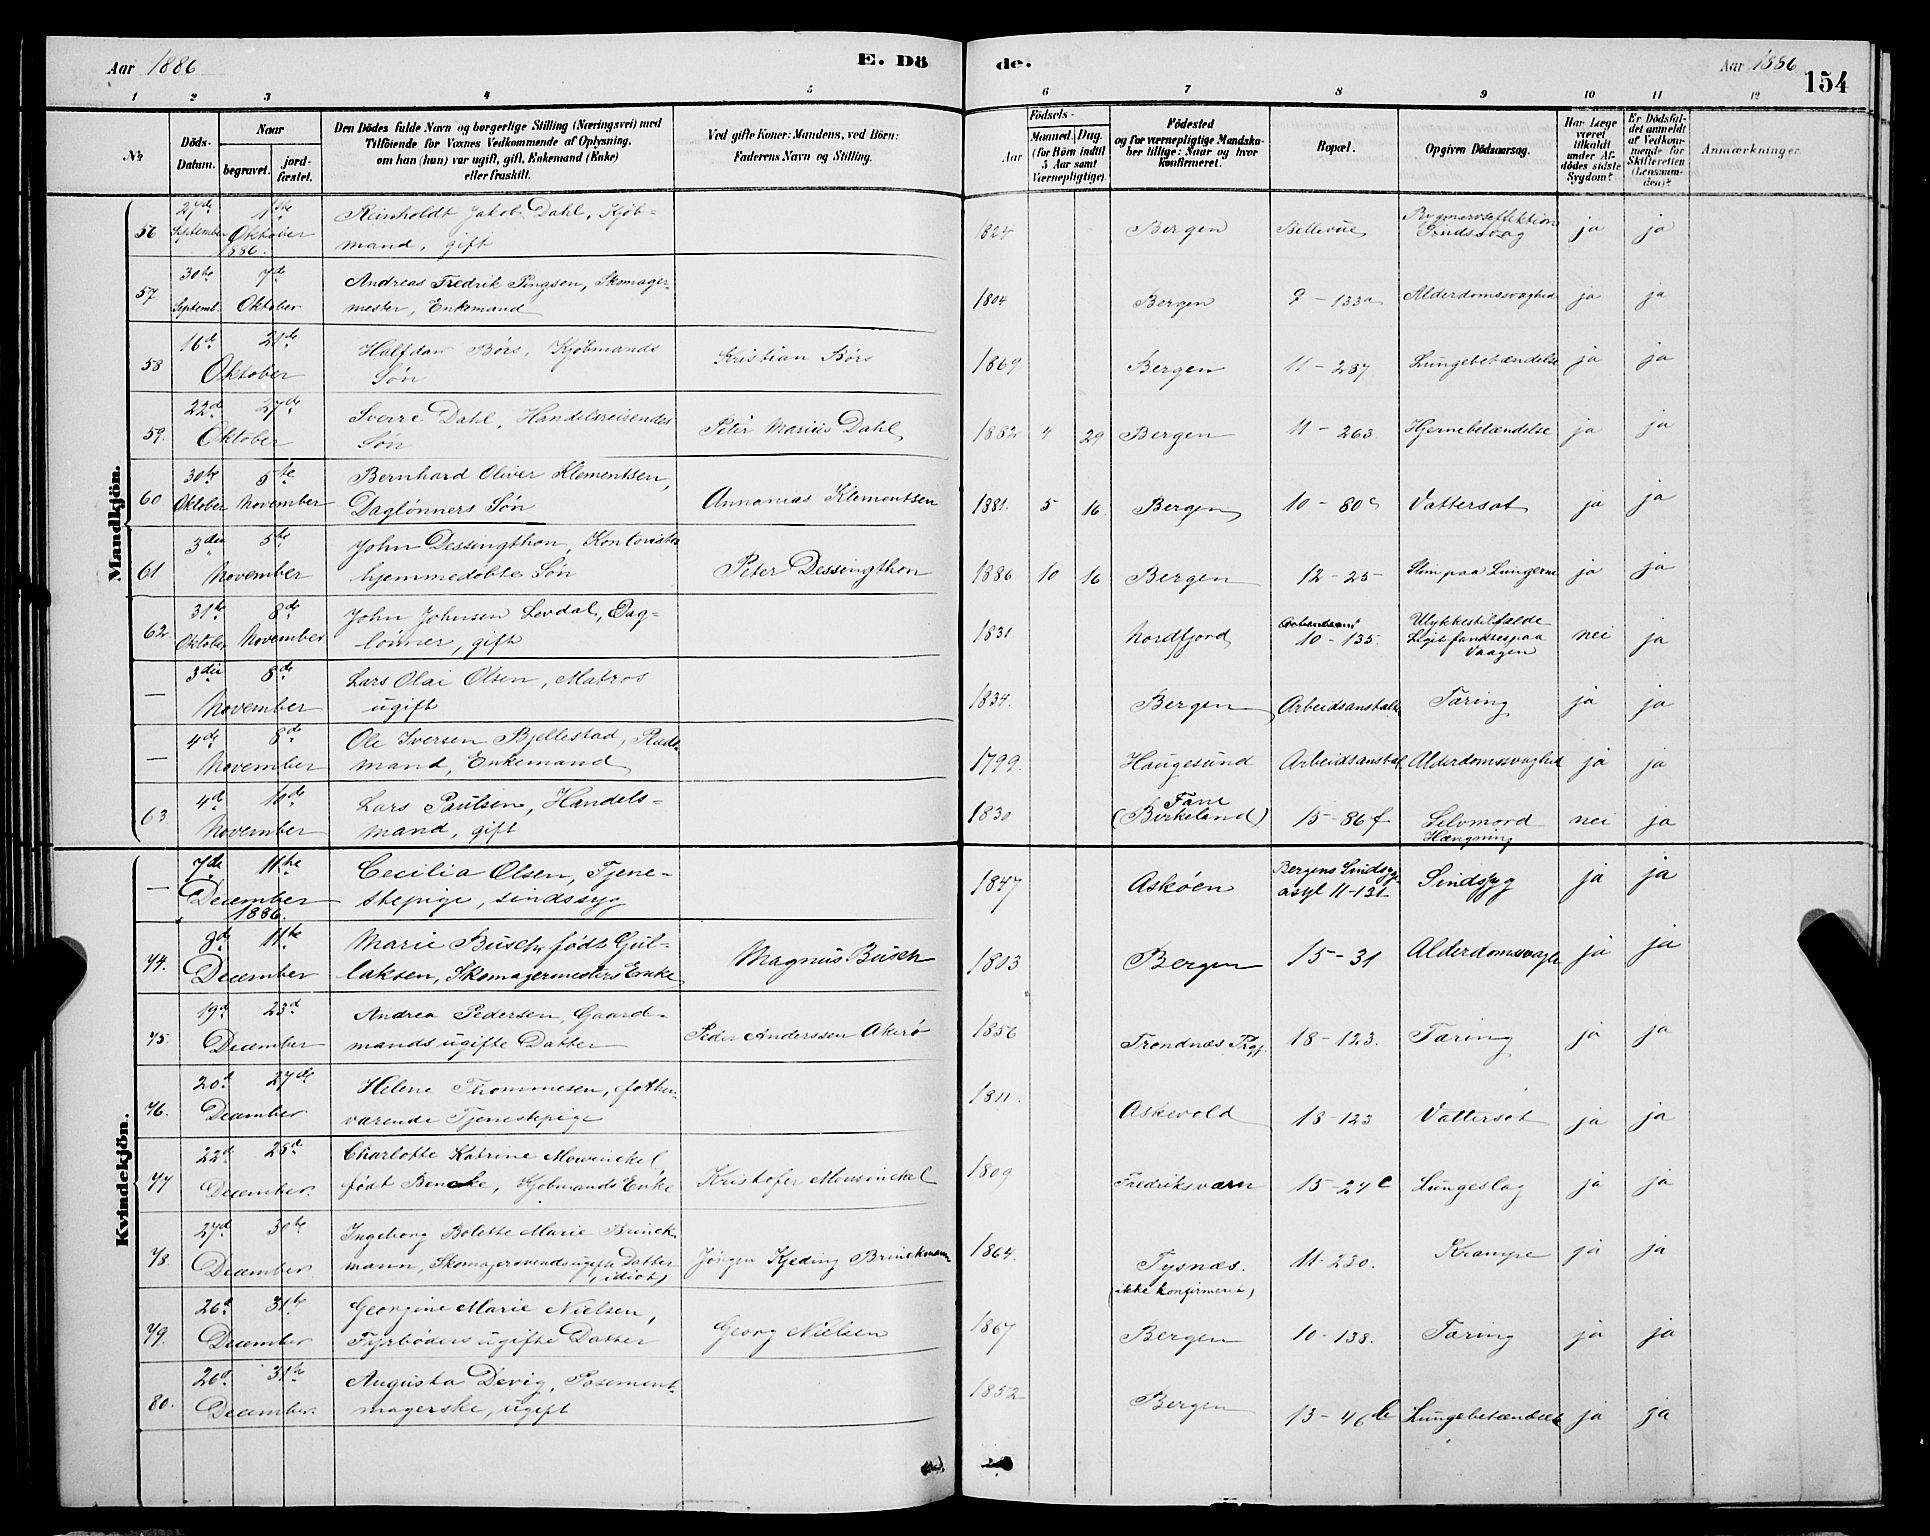 Aar 1886
E. Dö
de.
Aar 1886
154
1 2 3 4 5 6 7 8 9 10 11 12
No
Döds-Datum.
Naar
begravet.
jord-fæstet.
Den Dödes fulde Navn og borgerlige Stilling (Næringsvei) med
Tilföiende for Voxnes Vedkommende af Oplysning,
om han (hun) var ugift, gift, Enkemand (Enke)
eller fraskilt.
Ved gifte Koner: Mandens, ved Börn:
Faderens Navn og Stilling.
Födsels-
Aar
Maaned.
Dag.
(for Börn indtil
5 Aar samt
Værnepligtige).
Födested
og for værnepligtige Mandska-
ber tillige: Naar og hvor
konfirmeret.
Bopæl.
Opgiven Dödsaarsag.
Har Læge
været
tilkaldt
under Af-
dödes sidste
Sygdom?
Er Dödsfal-
det anmeldt
af Vedkom-
mende for
Skifteretten
(Lensman-
den)?
Anmærkninger.
Mandkjön.
56 27de September 1ste Oktober 1886. Reinholdt Jakob Dahl, Kjøb-
mand, gift 1824 Bergen Bellevue Sindssvag ja ja
57 30te Septemb. 7de Oktober Andreas Fredrik Pingsen, Skomager-
mester, Enkemand 1804 Bergen 9-133a Alderdomssvaghed ja ja
58 16de 21de Oktober Halfdan Børs, Kjøbmands
Søn Kristian Børs 1869 Bergen 11-287 Lungebetændelse ja ja
59. 22de 27de Oktober Sverre Dahl, Handelsreisendes
Søn Peter Marius Dahl 1882 4 29 Bergen 11-263 Hjernebetændelse ja ja
60 30te Oktober 5te November Bernhard Oliver Klementsen,
Daglønners Søn Annanias Klementsen 1881. 5 16 Bergen 10-80c Vattersot ja ja
61 3die 5te November John Dessingthon, Kontorists
hjemmedøbte Søn Peter Dessingthon 1886 10 16 Bergen 12-25- Slim paa Lungerne ja ja
62 31te Oktober 8de November John Johnsen Levdal, Dag-
lønner, gift 1831 Nordfjord 10-135. Ulykkestilfælde
Liget fandtes paa
Vaagen nei ja
— 3die 8de November Lars Olai Olsen, Matros
ugift 1834. Bergen Arbeidsanstalten Tæring ja ja
— 4de 8de November Ole Iversen Bjellestad,
mand, Enkemand 1799. Haugesund Arbeidsanstal Alderdomssvaghed ja ja
63 4de 10de November Lars Paulsen, Handels-
mand, gift 1830 Fane
(Birkeland) 15-86f Selvmord
Hængning nei ja
Kvindekjön.
— 7de 11te December 1886. Cecilia Olsen, Tjene-
stepige, sindssyg 1847 Askøen Bergens Sindssyge
asyl 11-131 Sindssyg ja ja
74. 8de 11te December Marie Busch, født Gul-
laksen, Skomagermesters Enke Magnus Busch 1803 Bergen 15-31 Alderdomssvaghe ja ja
75. 19d 23d December Andrea Pedersen, Gaard-
mands ugifte Datter Peder Anderssen Akerø 1856 Trondnæs Prgj. 18-123. Tæring ja ja
76. 20d 27de December Helene Thommesen, forhen-
værende Tjenestepige 1811. Askevold 18-123 Vattersot ja ja
77 22d 28d December. Charlotte Katrine Mowinckel,
født Bencke, Kjøbmands Enke Kristofer Mowinckel 1809 Fredriksværn 15-24c Lungeslag ja ja
78. 27d 30te December. Ingeborg Bolette Marie Brinck-
mann, Skomagersvends ugifte Datter
, idiot, Jørgen Kjeding Brinckmann 1864. Tysnæs.
(ikke konfirmeret) 11-230. Krampe ja ja
79. 26d 31te December Georgine Marie Nielsen,
Fyrbøders ugifte Datter Georg Nielsen 1867 Bergen 10-138. Tæring ja ja
80. 26d 31te December. Augusta Devig, Posement-
magerske, ugift 1852 Bergen 13-46b Lungebetændelse ja ja